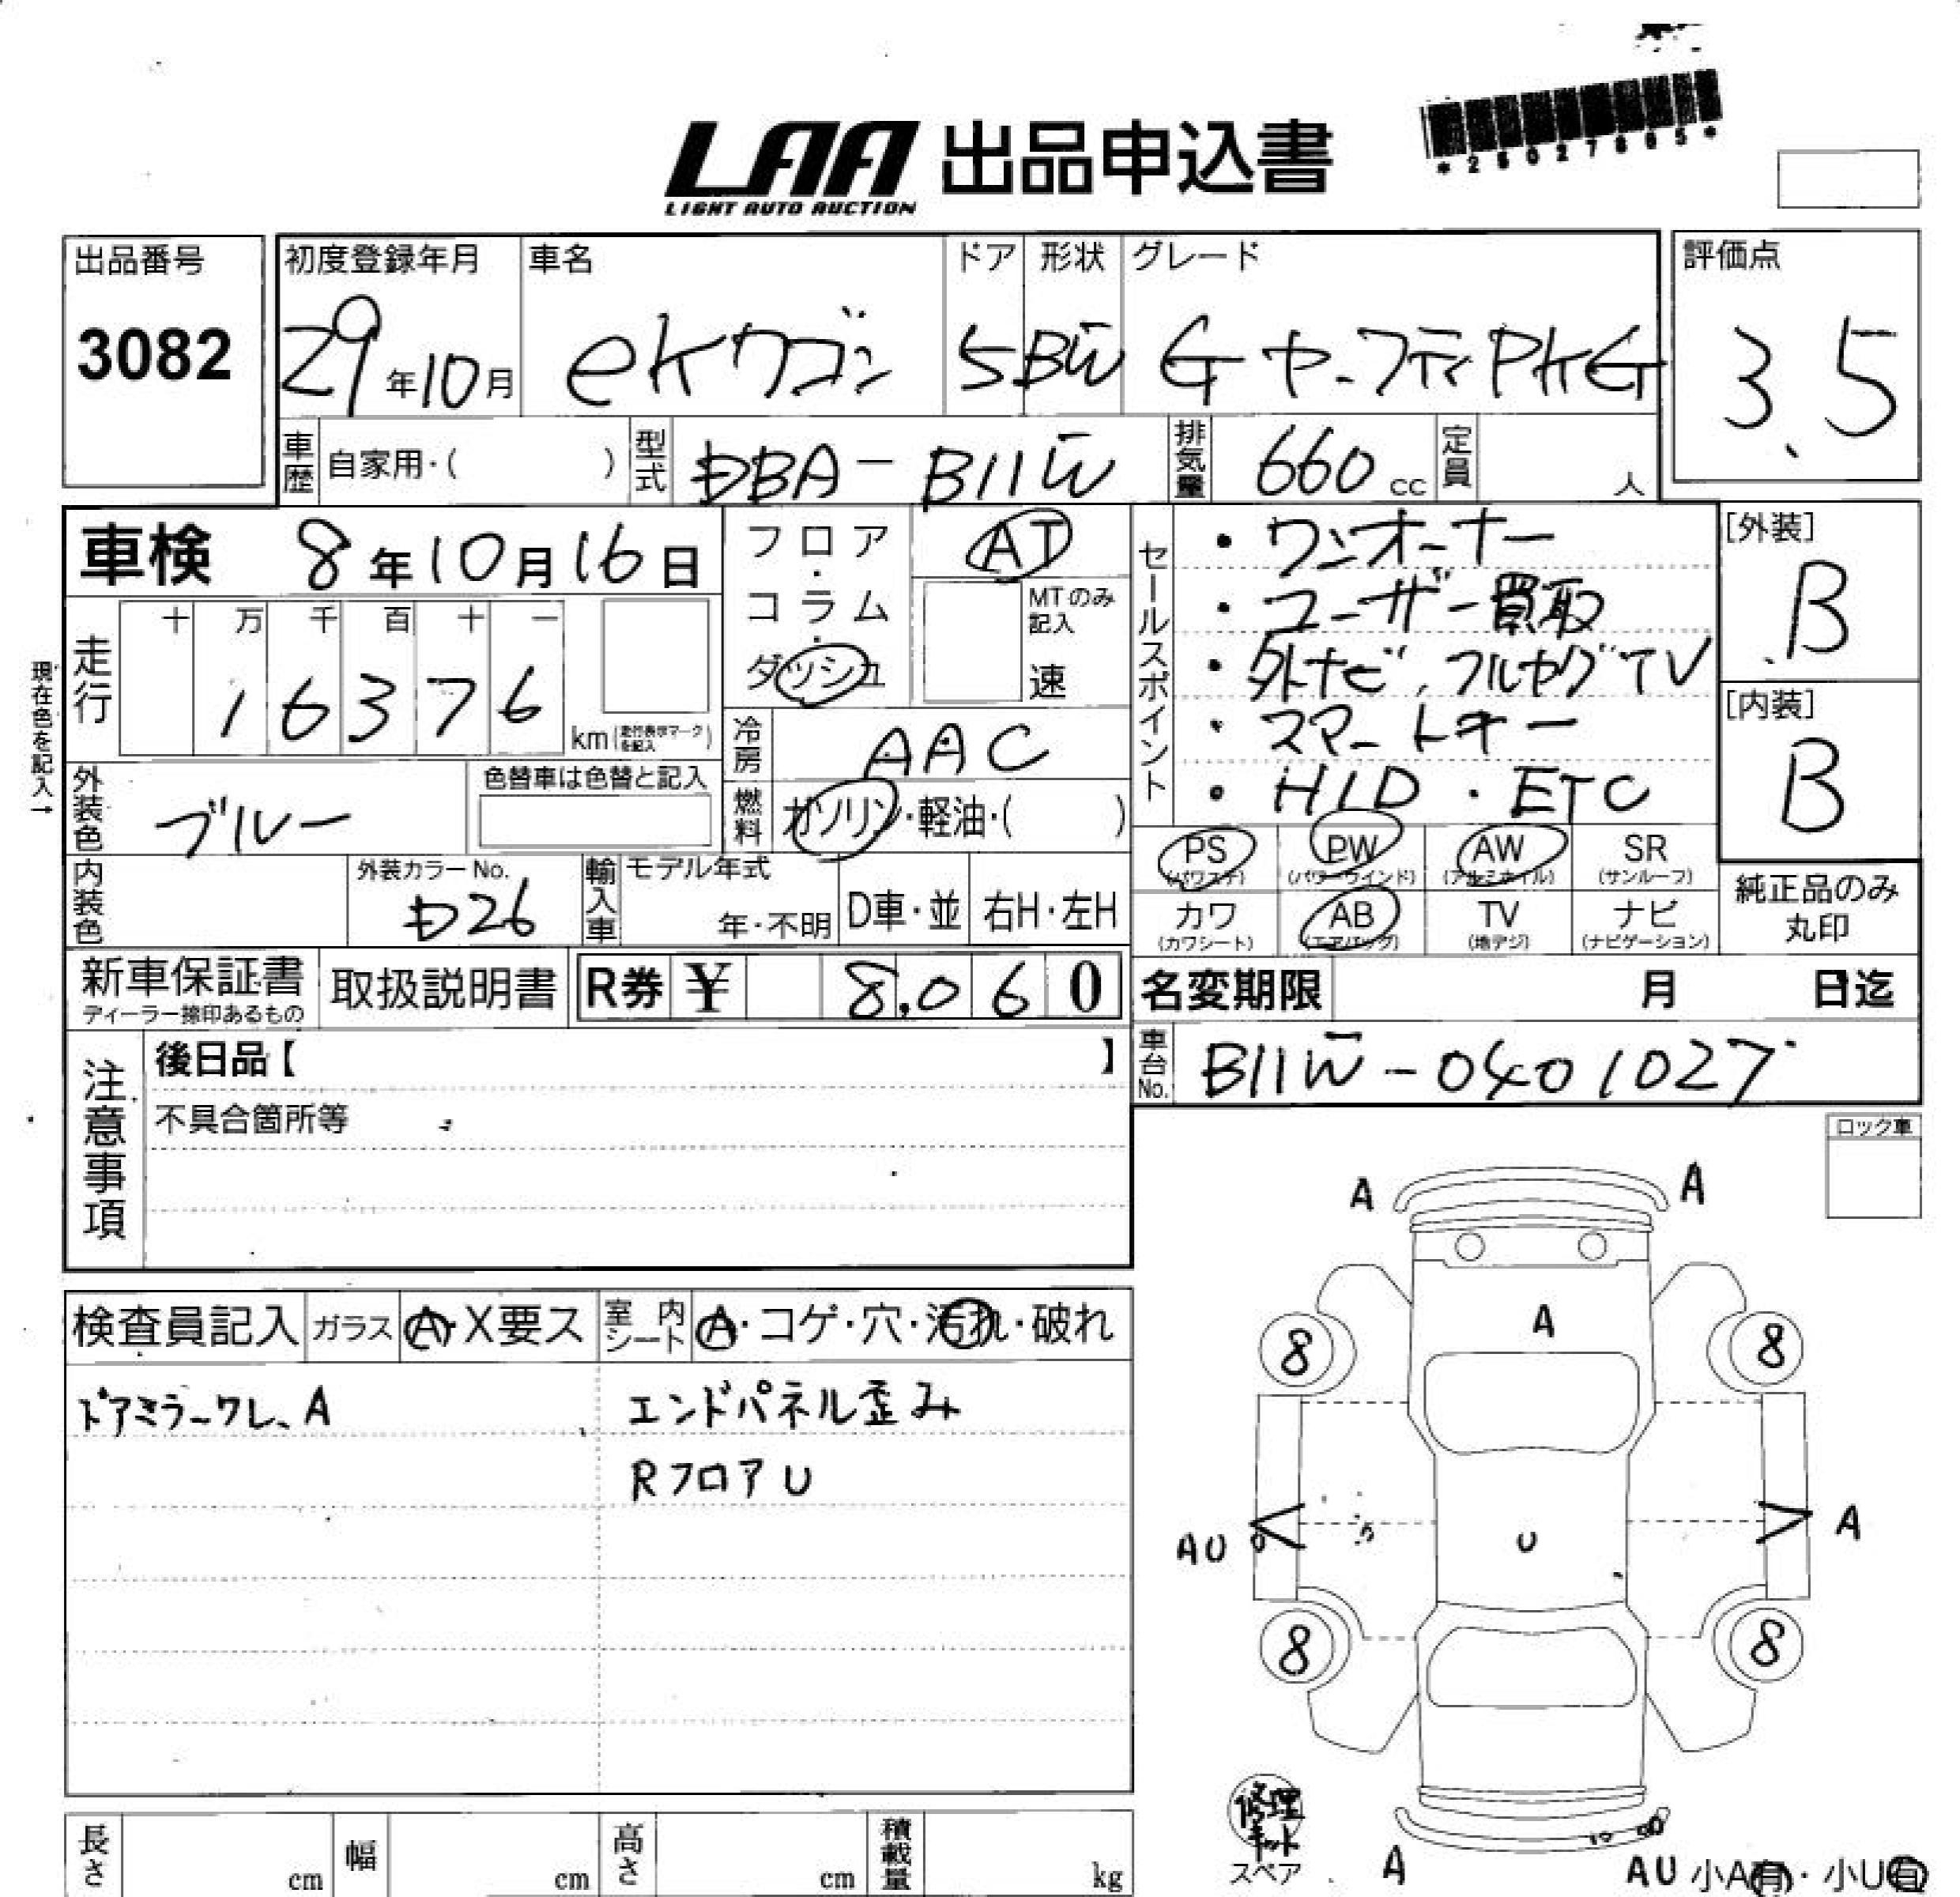 LAA 出品申込書
LIGHT AUTO AUCTION
出品番号
3082
初度登録年月 車名 ドア 形状 グレード
29年10月 eKワゴン 5 BW G セーフティPKG
評価点
3.5
車歴 自家用・( ) 型式 DBA-B11W 排気量 660cc 定員 人
車検 8年10月16日
フロア・コラム・ダッシュ
AT
MTのみ記入
速
セールスポイント
・ワンオーナー
・ユーザー買取
・外ナビ、フルセグTV
・スマートキー
・HID・ETC
[外装]
B
[内装]
B
現在色を記入→
走行 十 万 千 百 十 一
16376 km(走行表示マークを記入)
冷房 AAC
燃料 ガソリン・軽油・( )
外装色 ブルー
色替車は色替と記入
内装色
外装カラーNo.
D26
輸入車 モデル年式
年・不明 D車・並 右H・左H
PS (パワステ) PW (パワーウインド) AW (アルミホイル) SR (サンルーフ)
カワ (カワシート) AB (エアバッグ) TV (地デジ) ナビ (ナビゲーション)
純正品のみ丸印
新車保証書
ディーラー捺印あるもの
取扱説明書
R券 ¥ 8,060
名変期限 月 日迄
車台No. B11W-0401027
注意事項
後日品【 】
不具合箇所等
ロック車
検査員記入 ガラス A・X要ス 室内シート A・コゲ・穴・汚れ・破れ
ドアミラーワレ、A
エンドパネル歪み
RフロアU
A A
A
8 8
AU U A
8 8
修理キット
スペア
A AU 小A有・小U有
長さ cm 幅 cm 高さ cm 積載量 kg